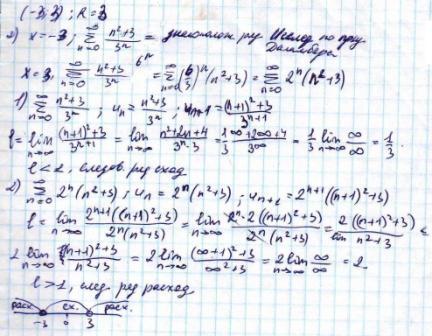 (-3;3); R=3
2) x=-3; ∑_{n=0}^{∞} (n²+3)/3ⁿ = ряд Исслед по пр.
Даламбера
x=3, ∑_{n=0}^{∞} (n²+3)/3ⁿ 6ⁿ = ∑_{n=0}^{∞} (6/3)ⁿ(n²+3) = ∑_{n=0}^{∞} 2ⁿ(n²+3)
1) ∑_{n=0}^{∞} (n²+3)/3ⁿ ; uₙ = (n²+3)/3ⁿ ; uₙ₊₁ = ((n+1)²+3)/3ⁿ⁺¹
l = lim_{n→∞} ((n+1)²+3)/3ⁿ⁺¹ = lim_{n→∞} (n²+2n+4)/(3ⁿ·3) = 1/3 (∞+2∞+4)/3^∞ = 1/3 lim_{n→∞} ∞/∞ = 1/3.
l<1, следов. ряд сход
2) ∑_{n=0}^{∞} 2ⁿ(n²+3); uₙ = 2ⁿ(n²+3); uₙ₊₁ = 2ⁿ⁺¹((n+1)²+3)
l = lim_{n→∞} 2ⁿ⁺¹((n+1)²+3)/(2ⁿ(n²+3)) = lim_{n→∞} 2ⁿ·2((n+1)²+3)/(2ⁿ(n²+3)) = 2((n+1)²+3)/(n²+3) =
2 lim_{n→∞} ((n+1)²+3)/(n²+3) = 2 lim_{n→∞} ((∞+1)²+3)/(∞²+3) = 2 lim_{n→∞} ∞/∞ = 2.
l>1, след. ряд расход
расх. сх. расх.
-3 0 3